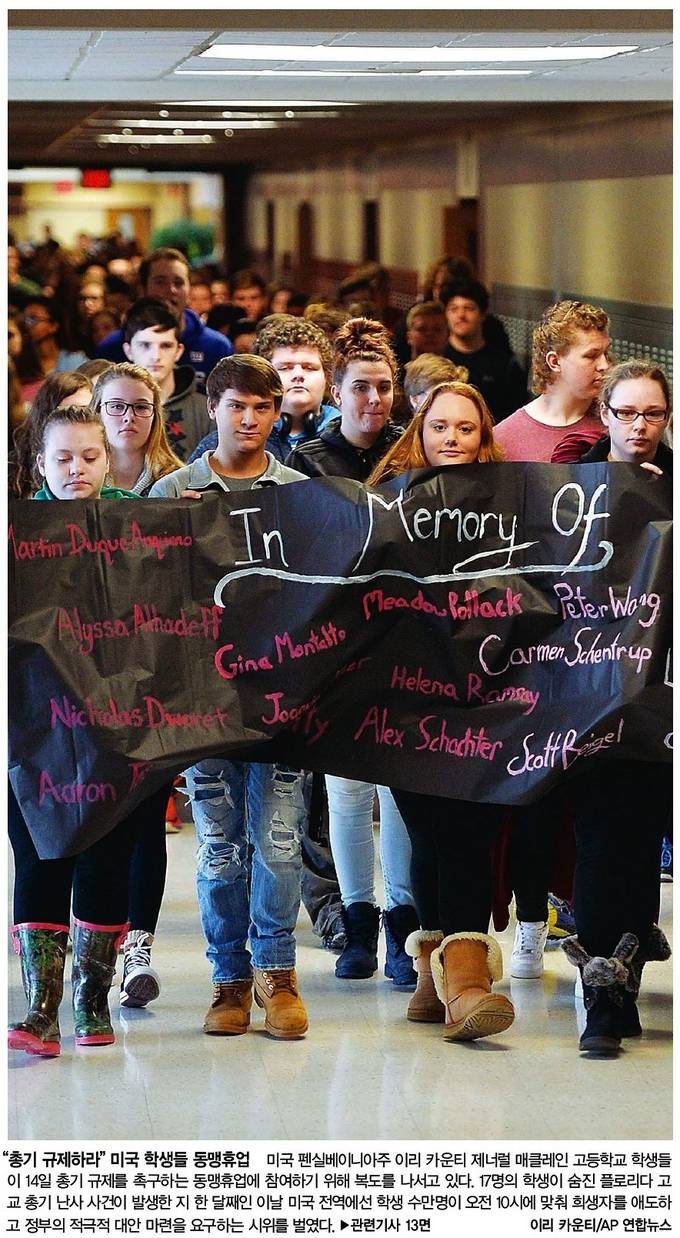 In Memory Of
Martin Duque Anguiano
Alyssa Alhadeff
Nicholas Dworet
Aaron
Gina Montalto
Meadow Pollack
Peter Wang
Carmen Schentrup
Helena Ramsay
Alex Schachter
Scott Beigel
“총기 규제하라” 미국 학생들 동맹휴업 미국 펜실베이니아주 이리 카운티 제너럴 매클레인 고등학교 학생들
이 14일 총기 규제를 촉구하는 동맹휴업에 참여하기 위해 복도를 나서고 있다. 17명의 학생이 숨진 플로리다 고
교 총기 난사 사건이 발생한 지 한 달째인 이날 미국 전역에서 학생 수만명이 오전 10시에 맞춰 희생자를 애도하
고 정부의 적극적 대안 마련을 요구하는 시위를 벌였다. ▶관련기사 13면 이리 카운티/AP 연합뉴스